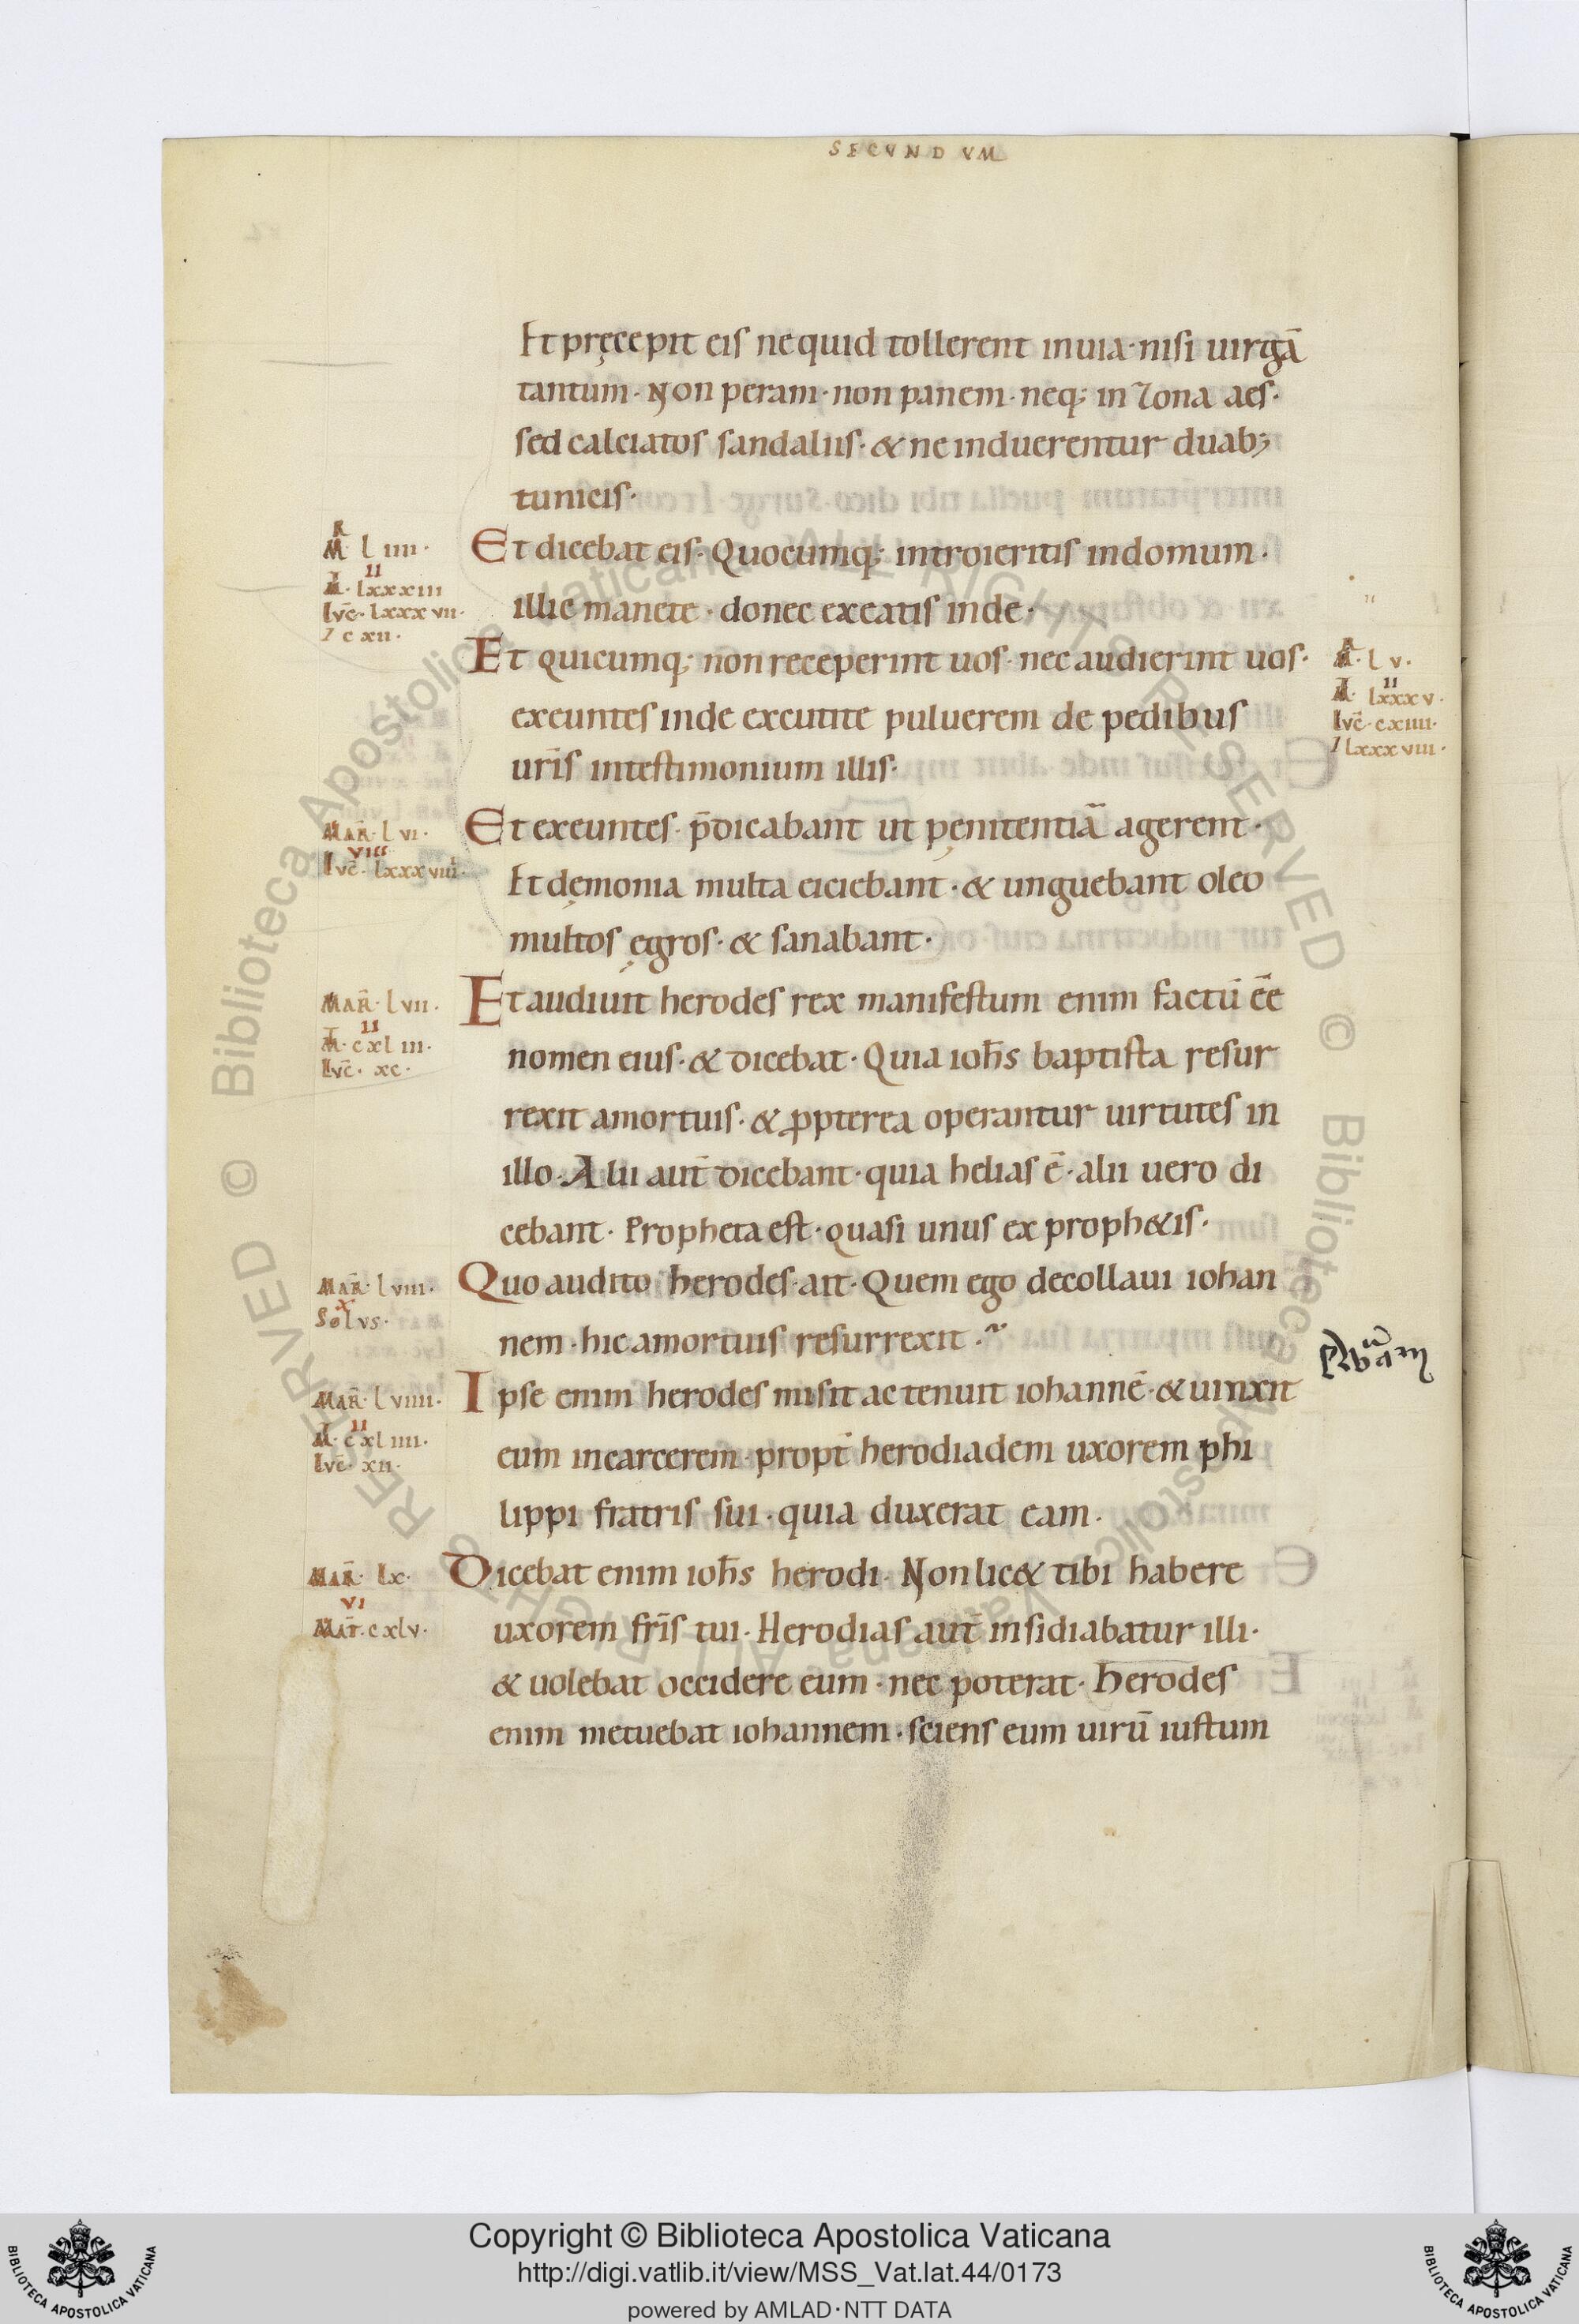 SECVNDVM
Et pręcepit eis nequid tollerent inuia· nisi uirgā
tantum· Non peram· non panem· neq; in zona aes·
sed calciatos sandaliis· & ne induerentur duab;
tunicis·
Et dicebat eis· Quocumq; introieritis indomum·
illic manete· donec exeatis inde·
Et quicumq; non receperint uos· nec audierint uos·
exeuntes inde excutite puluerem de pedibus
ur̄is intestimonium illis·
Et exeuntes· p̄dicabant ut pęnitentiā agerent·
Et dęmonia multa eiciebant· & unguebant oleo
multos ęgros· & sanabant·
Et audiuit herodes rex manifestum enim factū eē
nomen eius· & dicebat· Quia ioh̄s baptista resur
rexit amortuis· & ꝓpterea operantur uirtutes in
illo· Alii aut̄ dicebant· quia helias ē· alii uero di
cebant· Propheta est· quasi unus ex proph&is·
Quo audito herodes· ait· Quem ego decollaui iohan
nem· hic amortuis resurrexit·
Ipse enim herodes misit ac tenuit iohannē· & uinxit
eum incarcerem· propt̄ herodiadem uxorem phi
lippi fratris sui· quia duxerat eam·
Dicebat enim ioh̄s herodi· Non lic& tibi habere
uxorem fr̄is tui· Herodias aut̄ insidiabatur illi·
& uolebat occidere eum· nec poterat· Herodes
enim metuebat iohannem· sciens eum uirū iustum
M· l iiii·
II
M· lxxxiii
lvc̄· lxxxvii·
I cxii·
M· l v·
II
M· lxxxv·
lvc̄· cxiiii·
I lxxxviii·
MAR̄· l vi·
VIII
lvc̄· lxxxviii·
MAR̄· l vii·
II
M· cxliii·
lvc̄· xc·
MAR̄· l viii·
X
Solvs·
MAR̄· l viiii·
II
M· cxliiii·
lvc̄· xii·
MAR̄· lx·
VI
MAT̄· cxlv·
Copyright © Biblioteca Apostolica Vaticana
http://digi.vatlib.it/view/MSS_Vat.lat.44/0173
powered by AMLAD·NTT DATA
BIBLIOTECA APOSTOLICA VATICANA
BIBLIOTECA APOSTOLICA VATICANA
© Biblioteca Apostolica Vaticana ALL RIGHTS RESERVED © Biblioteca Apostolica Vaticana ALL RIGHTS RESERVED